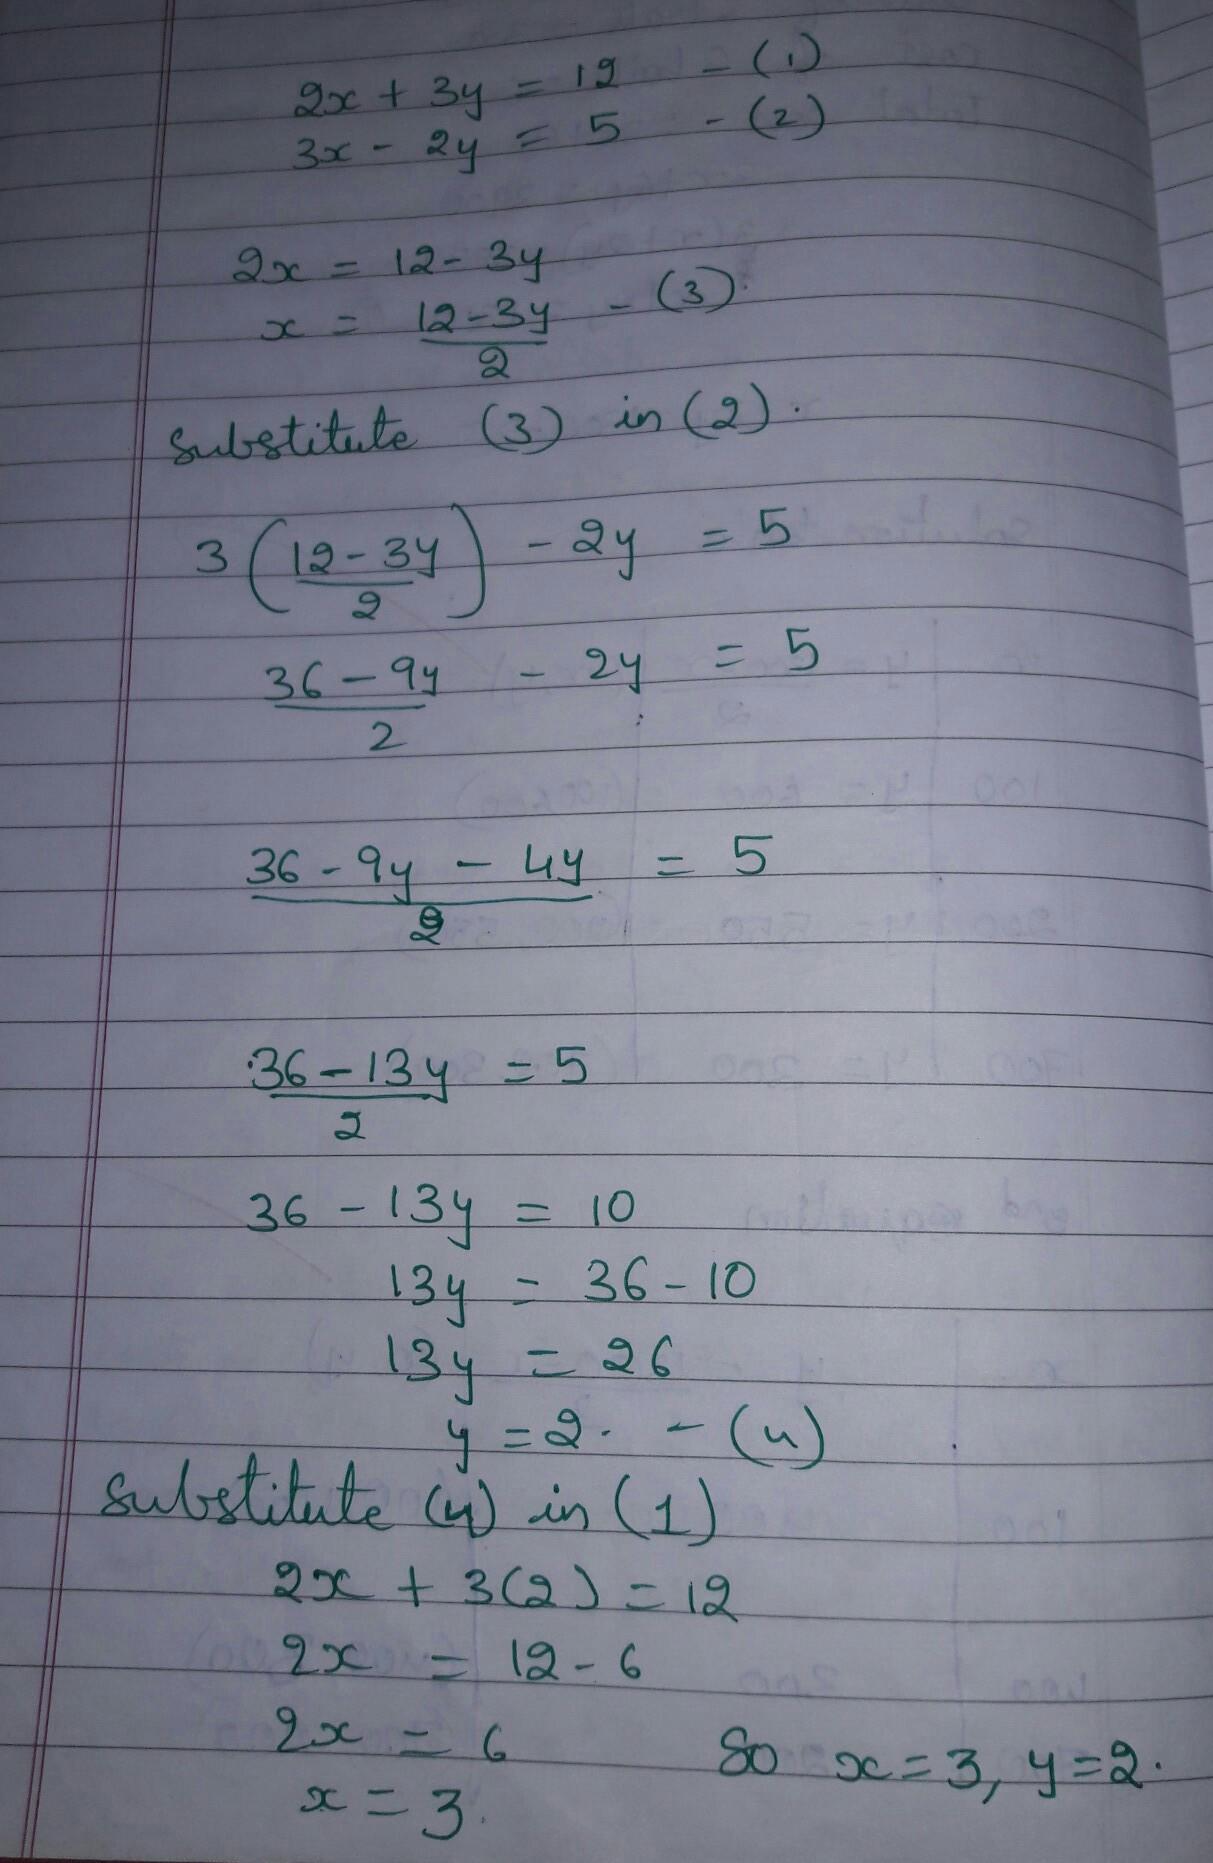 2x + 3y = 12 - (1)
3x - 2y = 5 - (2)
2x = 12 - 3y
x = (12 - 3y)/2 - (3).
Substitute (3) in (2).
3((12 - 3y)/2) - 2y = 5
(36 - 9y)/2 - 2y = 5
(36 - 9y - 4y)/2 = 5
(36 - 13y)/2 = 5
36 - 13y = 10
13y = 36 - 10
13y = 26
y = 2. - (4)
Substitute (4) in (1)
2x + 3(2) = 12
2x = 12 - 6
2x = 6
x = 3.
So x = 3, y = 2.